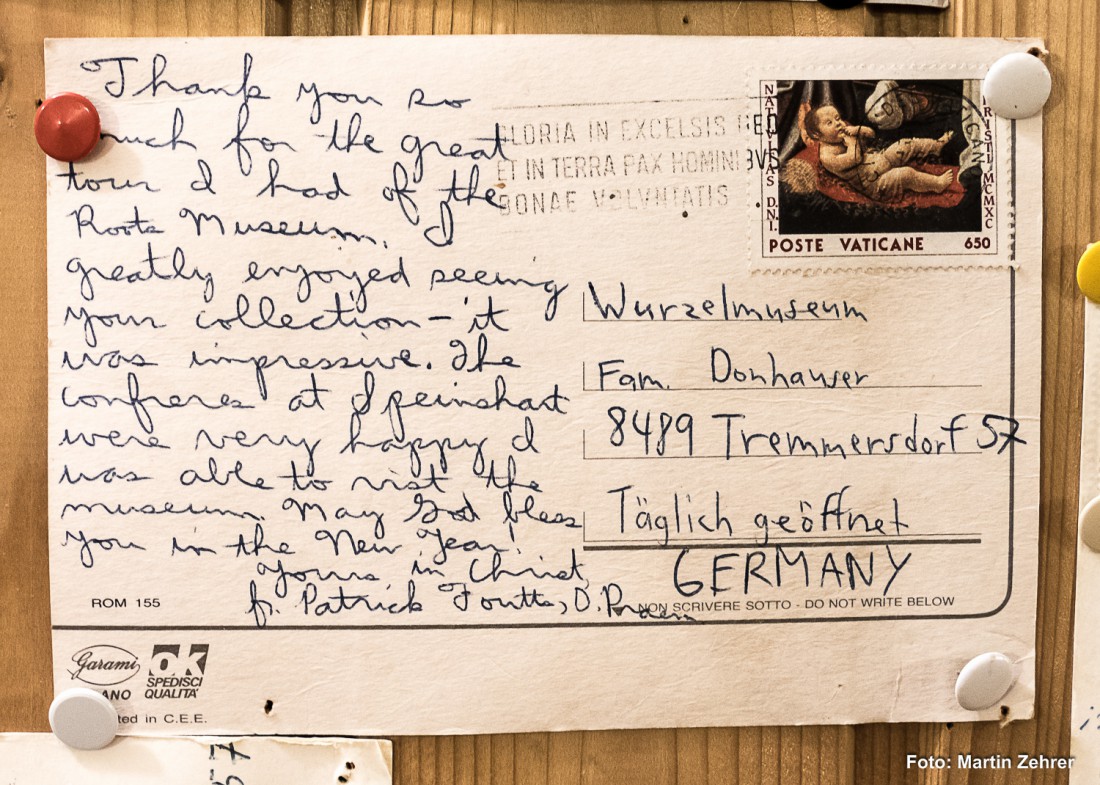 Thank you so
much for the great
tour I had of the
Roots Museum. I
greatly enjoyed seeing
your collection – it
was impressive. The
confreres at Speinshart
were very happy I
was able to visit the
museum. May God bless
you in the New Year!
Yours in Christ,
fr. Patrick Foutts, O. Praem
GLORIA IN EXCELSIS DEO
ET IN TERRA PAX HOMINIBVS
BONAE VOLVNTATIS
NATIVITAS D.N.I.
CHRISTI MCMXC
POSTE VATICANE 650
Wurzelmuseum
Fam. Donhauser
8489 Tremmersdorf 57
Täglich geöffnet
GERMANY
ROM 155
NON SCRIVERE SOTTO - DO NOT WRITE BELOW
Garami
ANO
OK
SPEDISCI
QUALITA'
ted in C.E.E.
57
Foto: Martin Zehrer